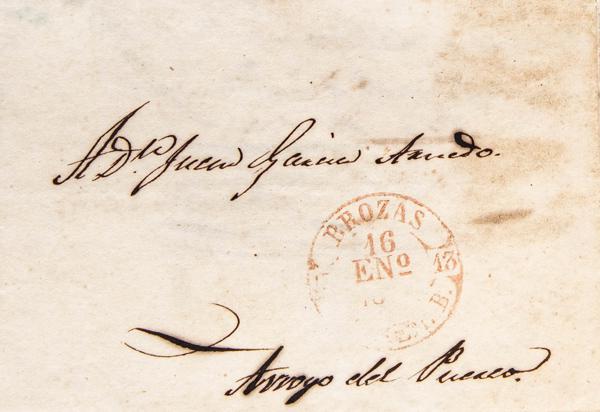 A D.ⁿ Juan Garcia Arnedo.
BROZAS
16
ENº
13
18
EST. B.
Arroyo del Puerco.